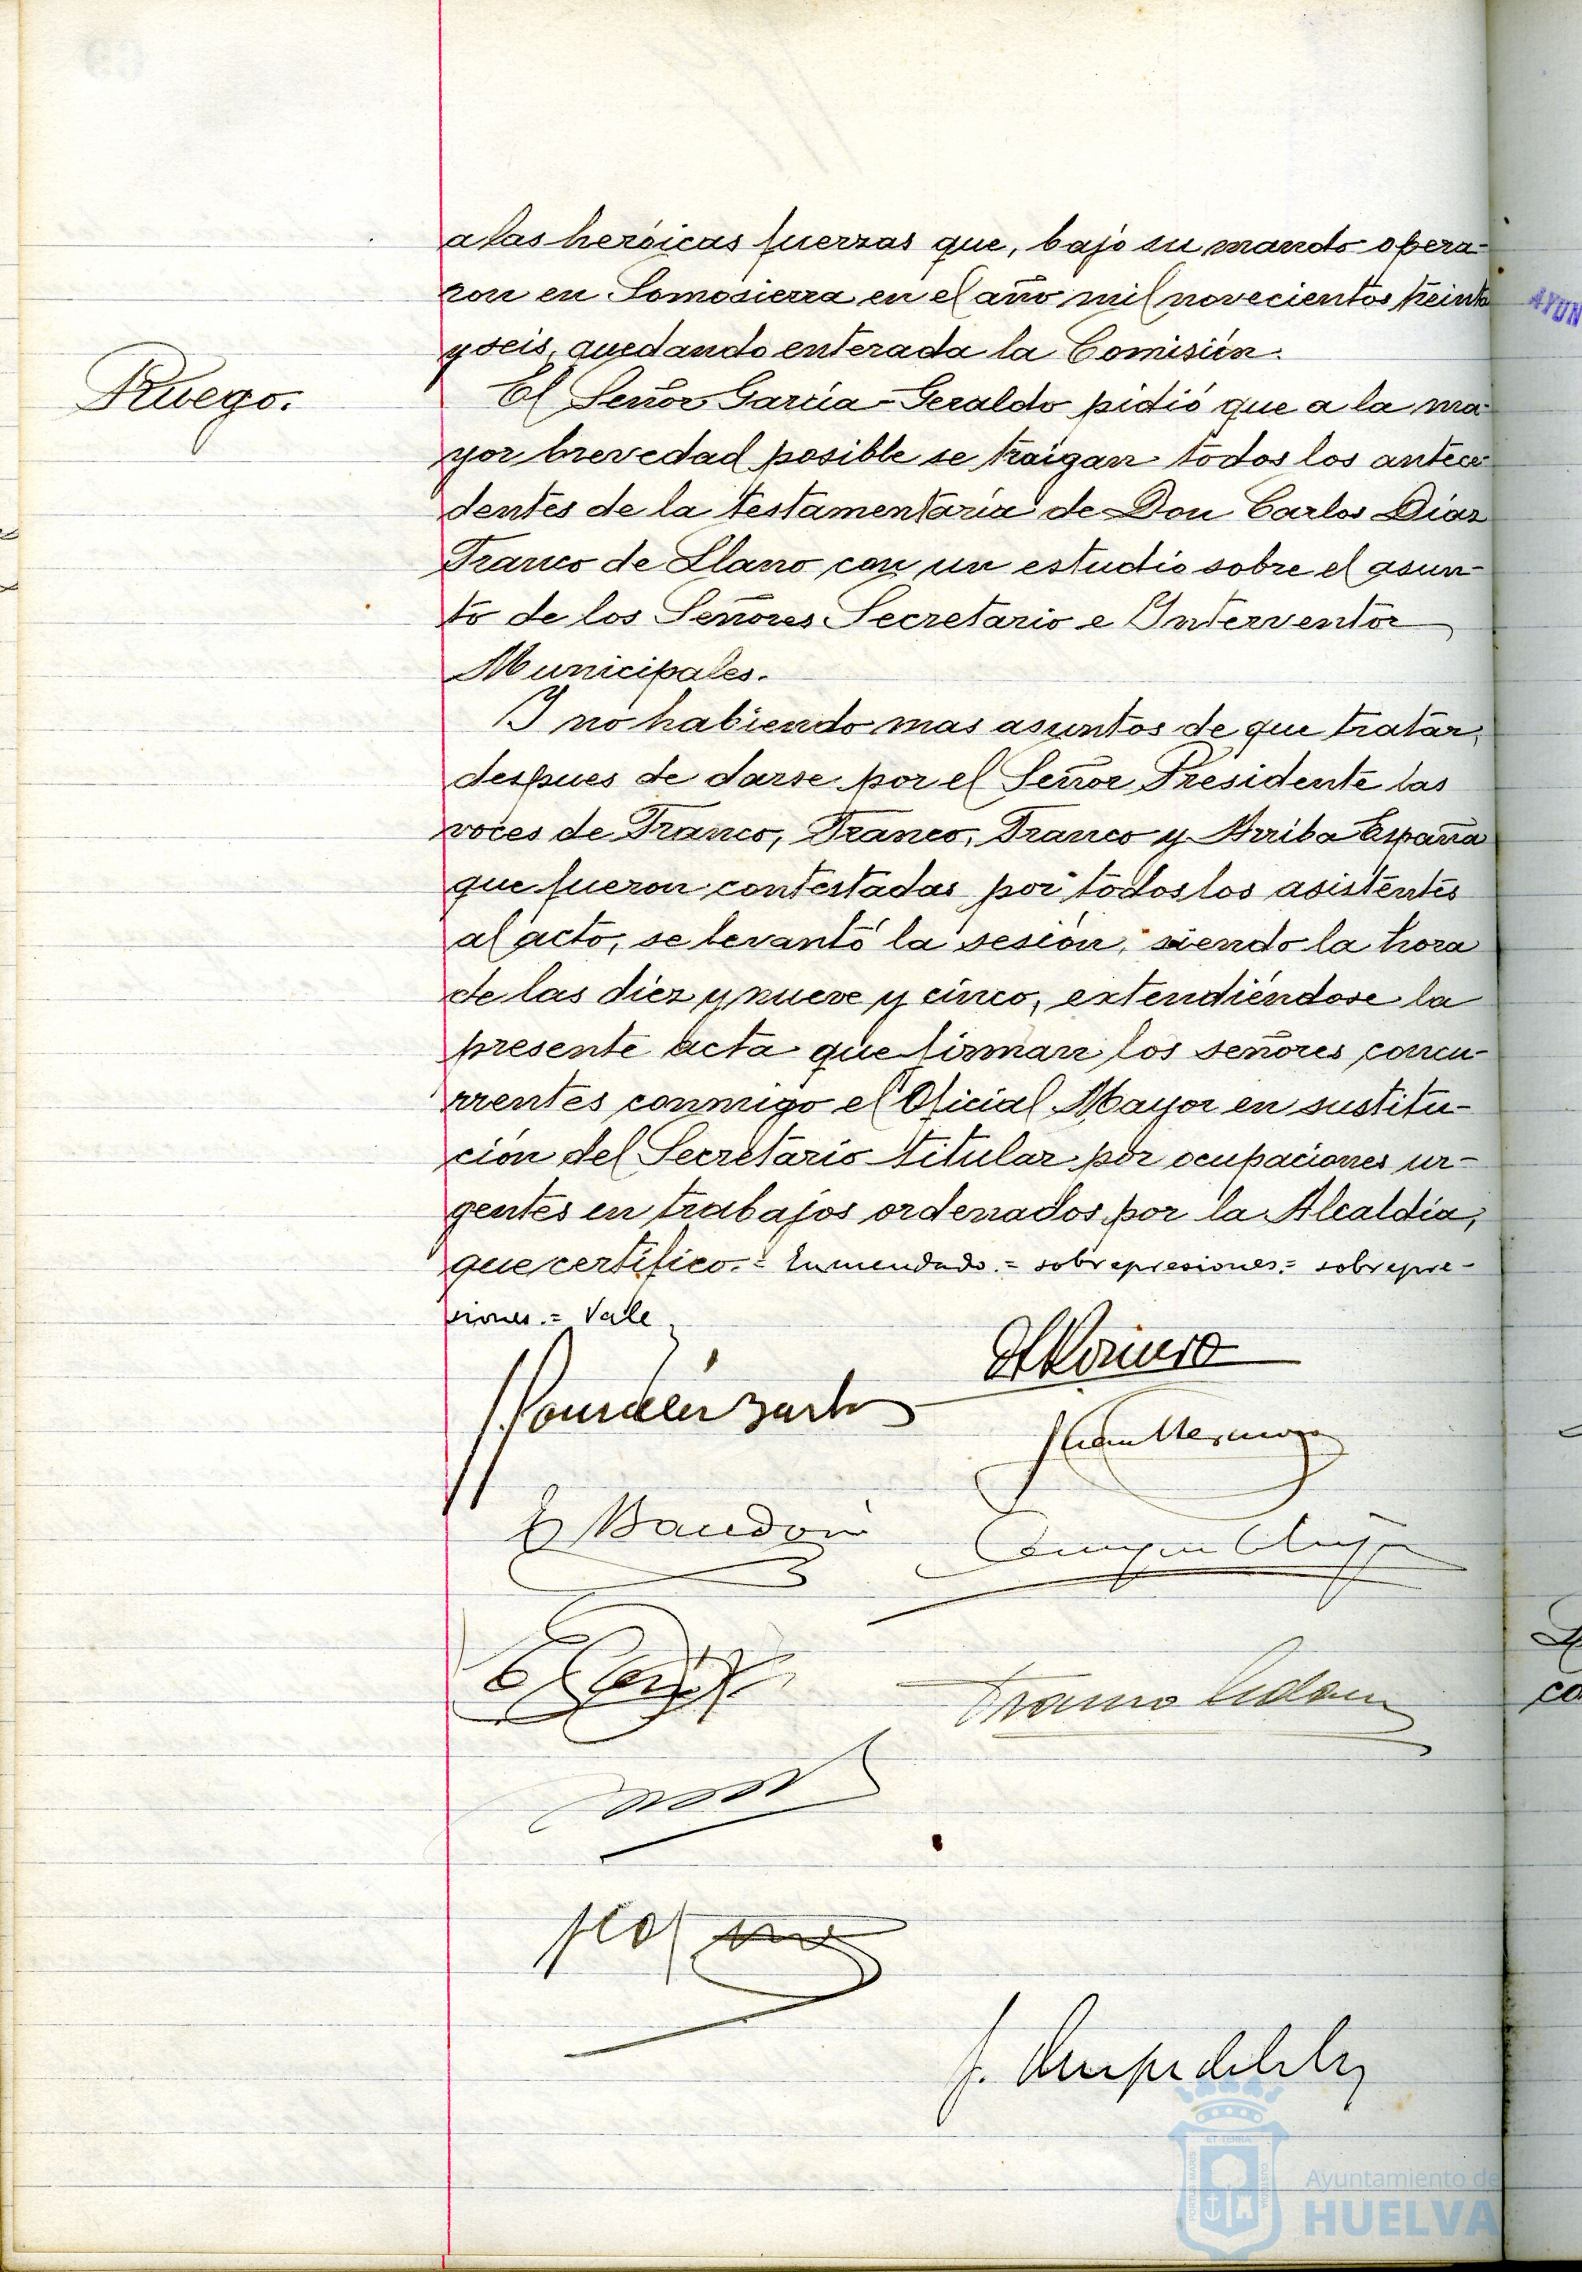 a las heróicas fuerzas que, bajo su mando opera-
ron en Somosierra en el año mil novecientos treinta
y seis, quedando enterada la Comisión.
Ruego.
El Señor García-Geraldo pidió que a la ma-
yor brevedad posible se traigan todos los antece-
dentes de la testamentaría de Don Carlos Díaz
Franco de Llano con un estudio sobre el asun-
to de los Señores Secretario e Interventor
Municipales.
Y no habiendo mas asuntos de que tratar,
despues de darse por el Señor Presidente las
voces de Franco, Franco, Franco y Arriba España
que fueron contestadas por todos los asistentes
al acto, se levantó la sesión, siendo la hora
de las diez y nueve y cinco, extendiéndose la
presente acta que firman los señores concu-
rrentes conmigo el Oficial Mayor en sustitu-
ción del Secretario titular por ocupaciones ur-
gentes en trabajos ordenados por la Alcaldía,
que certifico.= Enmendado.= sobrepresiones.= sobrepre-
siones.= Vale
AYUN
Ayuntamiento de
HUELVA